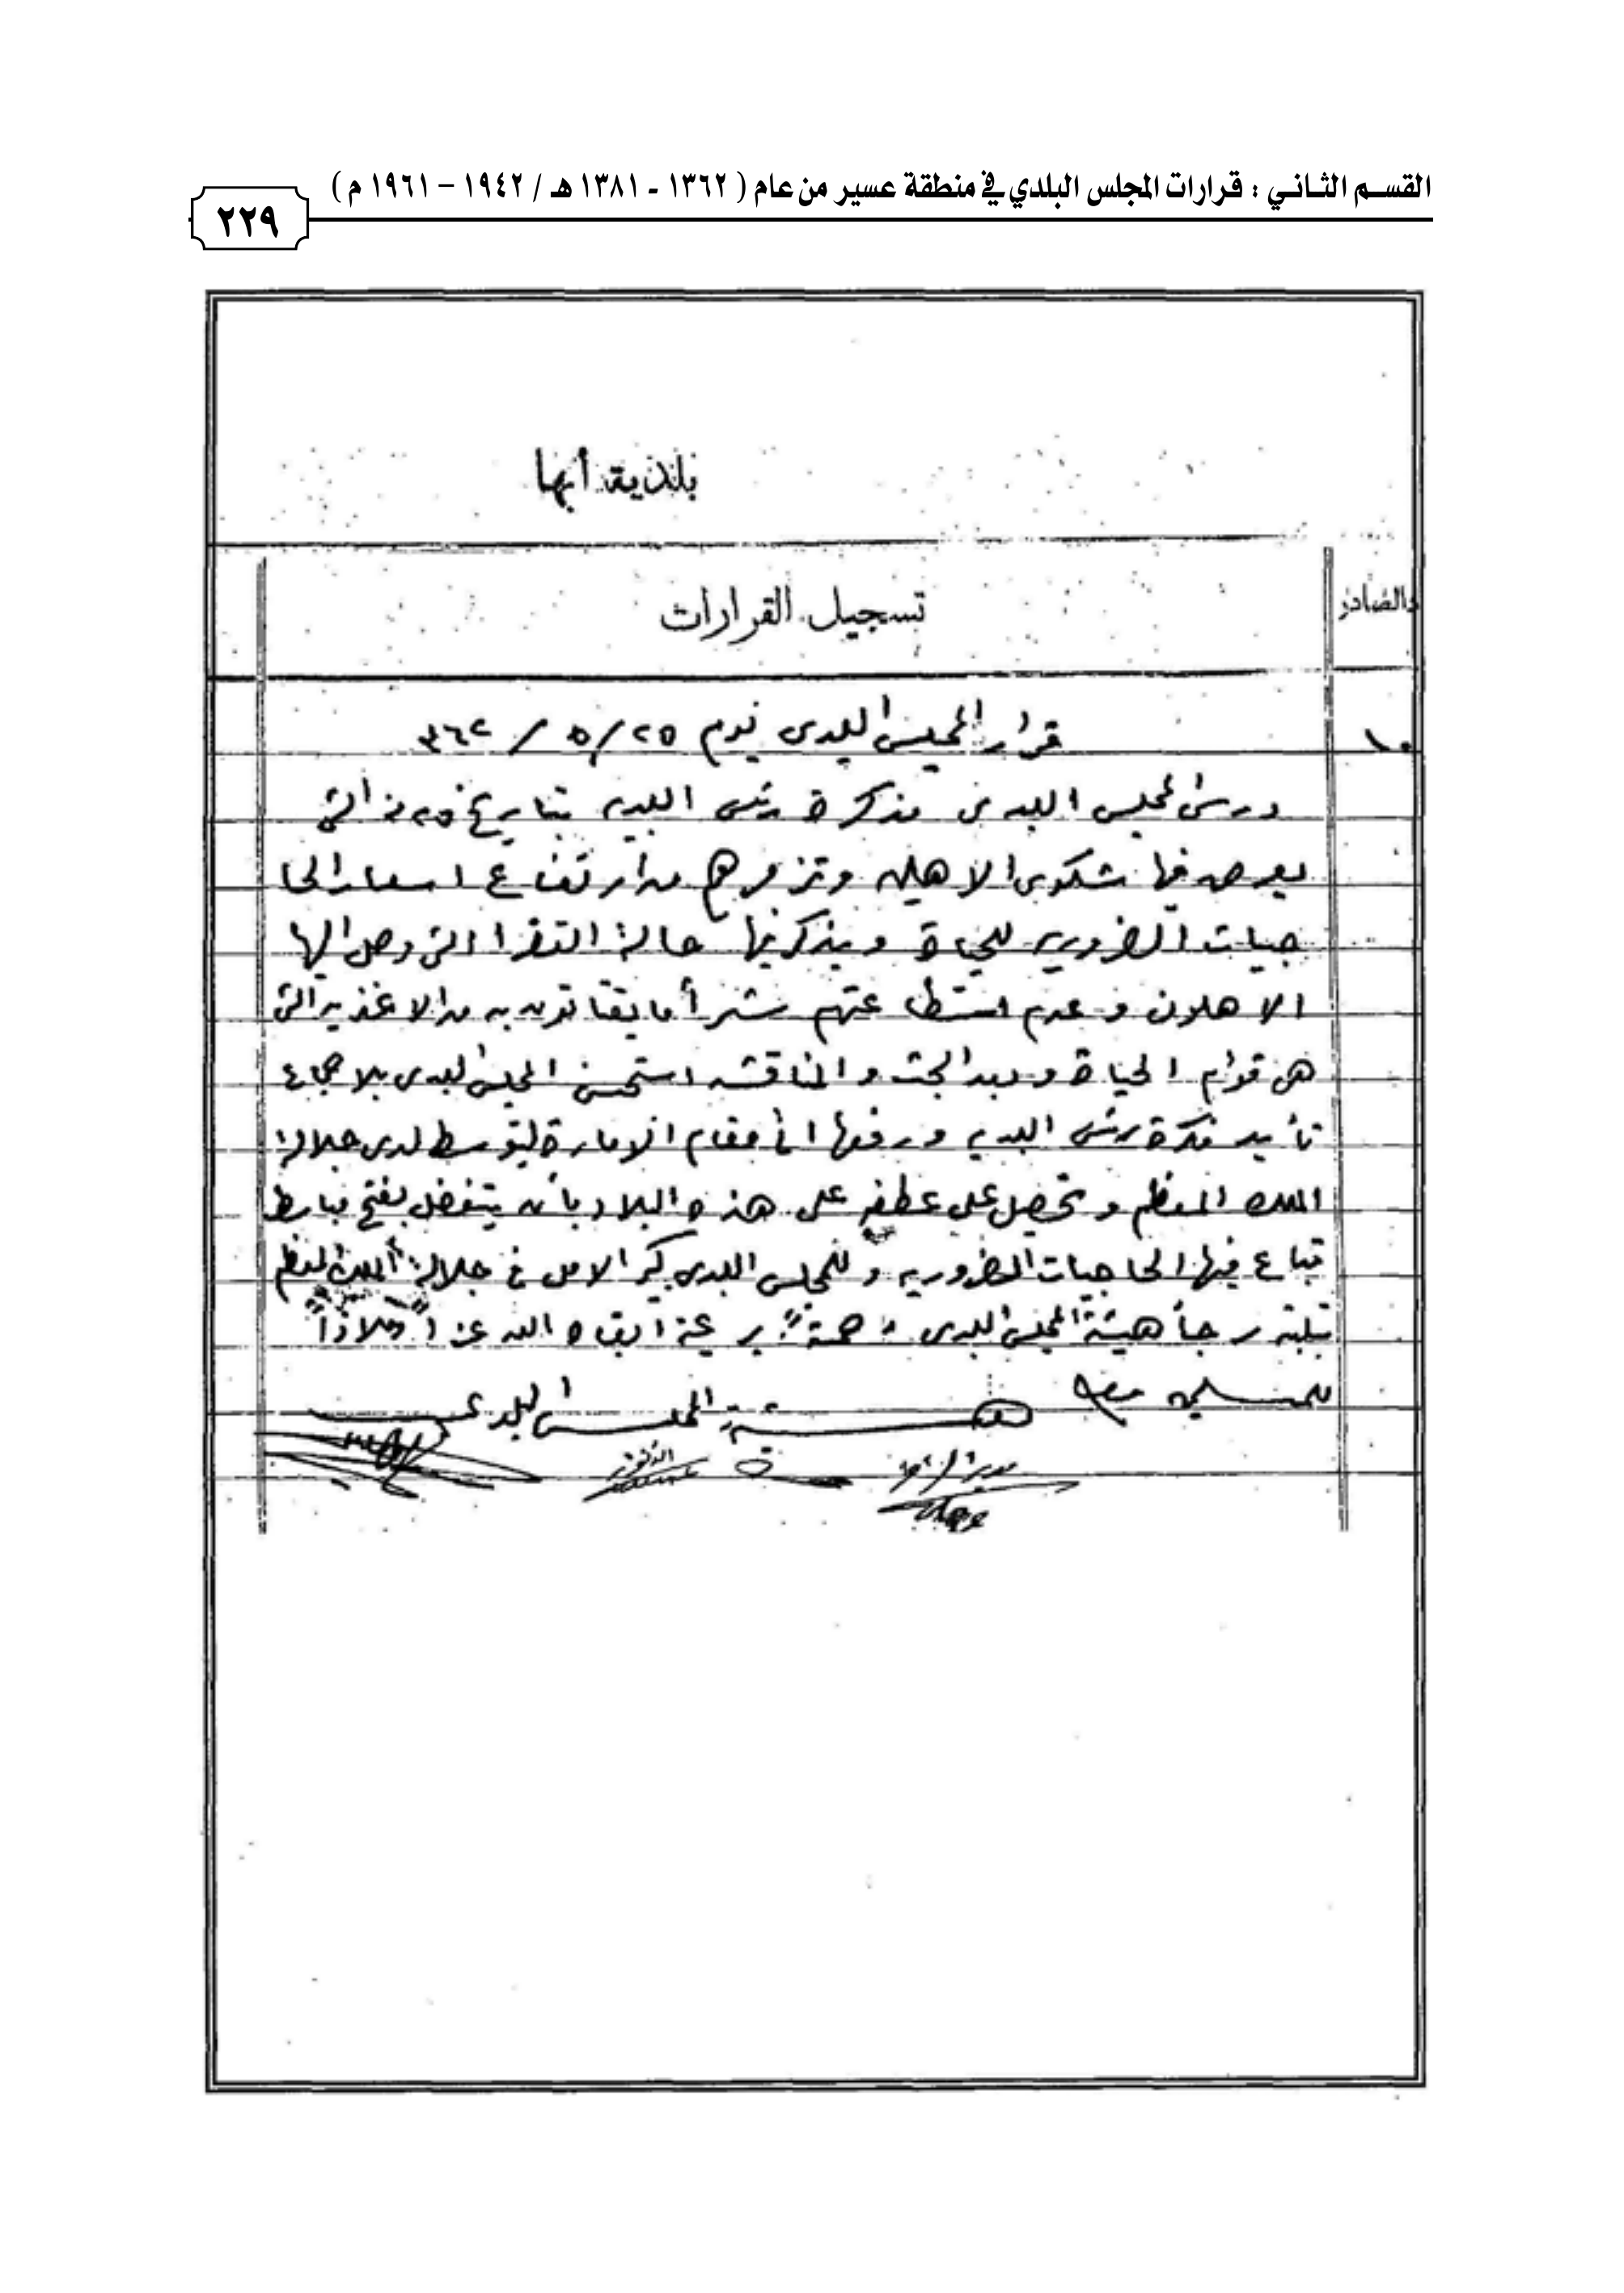 القسم الثاني : قرارات المجلس البلدي في منطقة عسير من عام ( ١٣٦٢ - ١٣٨١ هـ / ١٩٤٢ – ١٩٦١ م )
٢٢٩
بلدية أبها
تسجيل القرارات
الصادر
١٠
قرار المجلس البلدي يوم ٢٥ / ٥ / ٣٦٢
درس المجلس البلدي مذكرة رئيس البلديه بتاريخ ٢٥ منه التي
يعرض فيها شكوى الاهلين وتزمرهم من ارتفاع اسعار الحا
جيات الضروريه للحياة ويذكر فيها حالة الفقر التي وصل اليها
الاهلون وعدم استطاعتهم شراء ما يقتاتون به من الاغذيه التي
هي قوام الحياة وبعد البحث والمناقشه استحسن المجلس البلدي بالاجماع
تأييد فكرة رئيس البلديه ورفعها الى مقام الامارة ليتوسط لدى جلالة
الملك المعظم وتحصل على عطفه على هذه البلاد بأن يتفضل بفتح مبا سط
تباع فيها الحاجيات الضروريه وللمجلس البلدي كبير الامل في جلالة الملك المعظم
تلبية رجاء هيئة المجلس البلدي رعيته ابقاه الله عزاً وملاذاً
للمسلمين
هيئة المجلس البلدي